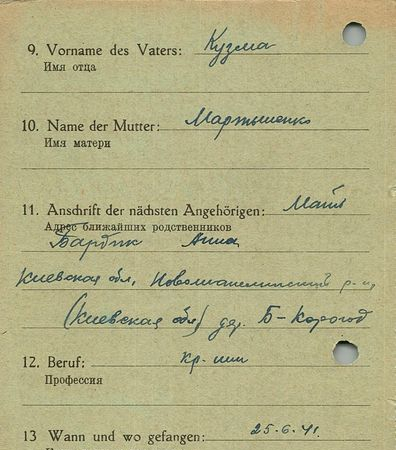 9. Vorname des Vaters: Кузма
Имя отца
10. Name der Mutter: Мартыненко
Имя матери
11. Anschrift der nächsten Angehörigen: Мать
Адрес ближайших родственников
Анна
Киевская обл,
(Киевская обл) дер. Б-Корогод
12. Beruf:
Профессия
13 Wann und wo gefangen: 25.6.41.